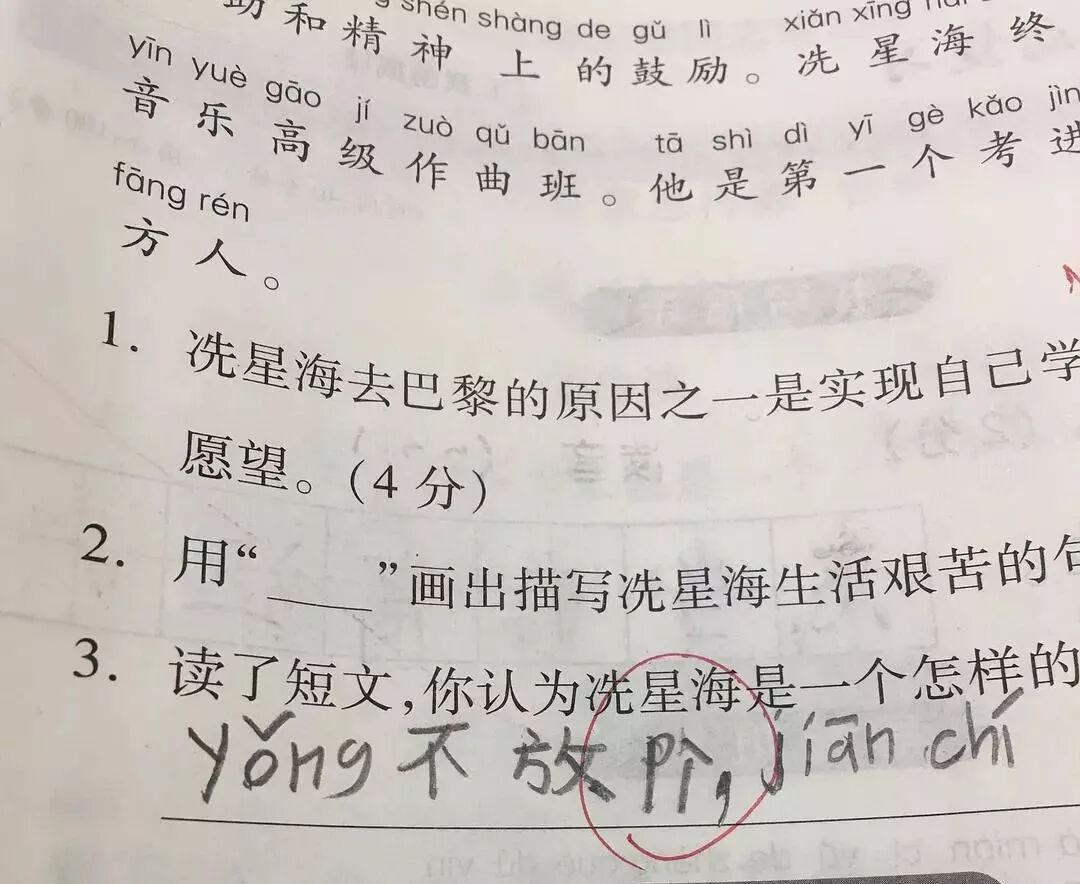 shén shàng de gǔ lì xiǎn xīng
和精神上的鼓励。冼星海终
yīn yuè gāo jí zuò qǔ bān tā shì dì yī gè kǎo jìn
音乐高级作曲班。他是第一个考进
fāng rén
方人。
1. 冼星海去巴黎的原因之一是实现自己学
愿望。(4 分)
2. 用“____”画出描写冼星海生活艰苦的句
3. 读了短文,你认为冼星海是一个怎样的
yǒng 不放 , jiān chí